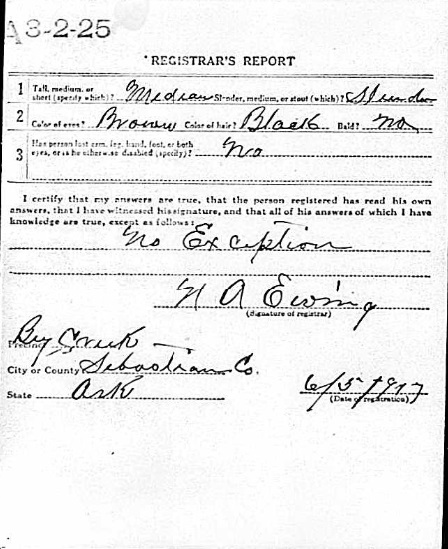 A3-2-25
REGISTRAR'S REPORT
1 Tall, medium, or short (specify which)? Medium Slender, medium, or stout (which)? Slender
2 Color of eyes? Brown Color of hair? Black Bald? No
3 Has person lost arm, leg, hand, foot, or both eyes, or is he otherwise disabled (specify)? No
I certify that my answers are true, that the person registered has read his own
answers, that I have witnessed his signature, and that all of his answers of which I have
knowledge are true, except as follows:
No Exception
N A Ewing
(Signature of registrar)
Precinct Big Creek
City or County Sebastian Co.
State Ark
6/5/1917
(Date of registration)